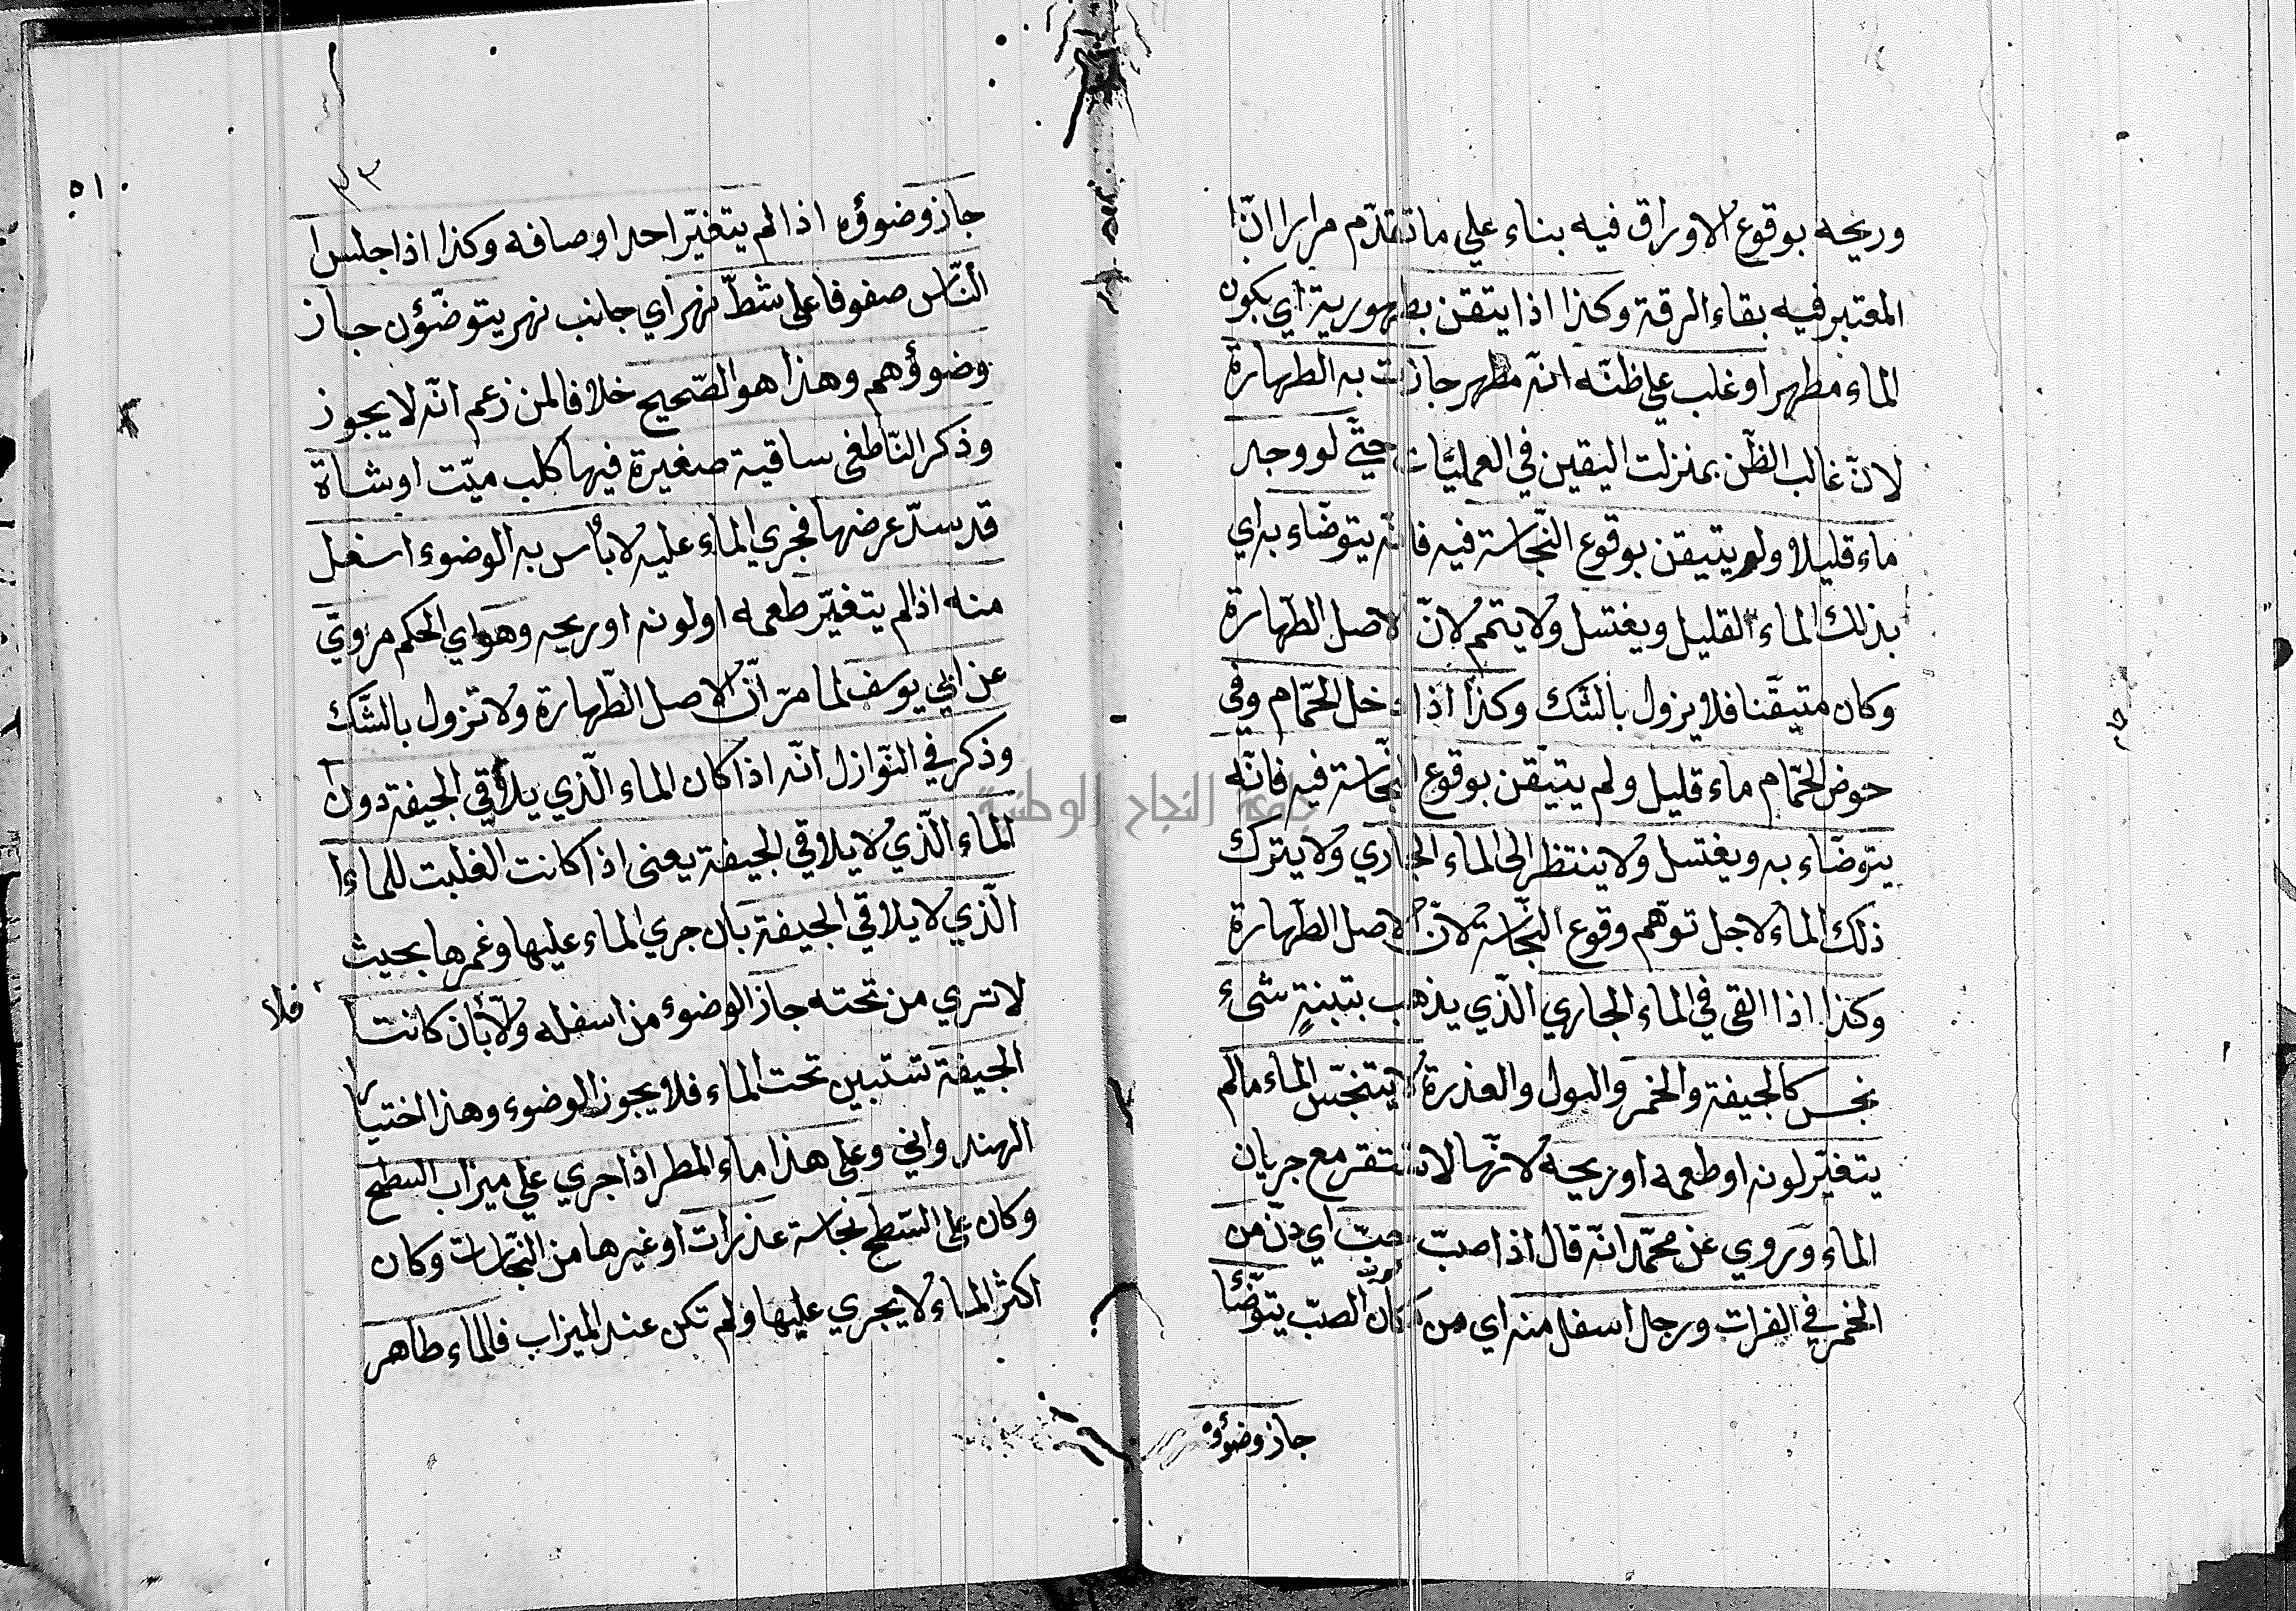 وريحه بوقوع الاوراق فيه بناء علي ما تقدّم مرارا انّ
المعتبر فيه بقاء الرقة وكذا اذا يتقن بطهورية اي بكون
الماء مطهرا او غلب علي ظنّه انّه مطهر جازت به الطهارة
لانّ غالب الظّن بمنزلت اليقين في العمليّات حتّي لو وجد
ماء قليلا ولم يتيقن بوقوع النّجاسة فيه فانّه يتوضّاء به اي
بذلك الماء القليل ويغتسل ولا يتمم لانّ الاصل الطّهارة
وكان متيقّنا فلا يزول بالشّك وكذا اذا دخل الحمّام وفي
حوض الحمّام ماء قليل ولم يتيّقن بوقوع النّجاسة فيه فانّه
يتوضّاء به ويغتسل ولا ينتظر الي الماء الجاري ولا يترك
ذلك الماء لاجل توّهم وقوع النّجاسة لانّ الاصل الطّهارة
وكذا اذا القي في الماء الجاري الّذي يذهب بتبنةٍ شىءٍ
نجس كالجيفة والخمر والبول والعذرة لا يتنجّس الماء مالم
يتغيّر لونه او طعمه او ريحه لانّها لا تستقر مع جريان
الماء وروي عن محمّد انّه قال اذا صبّ حبّ اي دنّ من
الخمر في الفرات ورجل اسفل منه اي من مكان الصبّ يتوضّا
جاز وضوؤه
٣٣
٥١
جاز وضوؤه اذا لم يتغيّر احد اوصافه وكذا اذا جلس
النّاس صفوفا علي شطّ نهر اي جانب نهر يتوضّؤن جاز
وضوؤهم وهذا هو الصّحيح خلافا لمن زعم انّه لا يجوز
وذكر النّاطفى ساقية صغيرة فيها كلب ميّت او شاة
قد سدّ عرضها فجري الماء عليه لا بأس به الوضوء اسفل
منه اذا لم يتغيّر طعمه او لونه او ريحه وهو اي الحكم مرويّ
عن ابي يوسف لما مرّ انّ الاصل الطّهارة ولا تزول بالشّك
وذكر في النّوازل انّه اذا كان الماء الّذي يلاقي الجيفة دون
الماء الّذي لا يلاقي الجيفة يعني اذا كانت الغلبت للماء
الّذي لا يلاقي الجيفة بان جري الماء عليها وغمرها بحيث
لا تري من تحته جاز الوضوء من اسفله ولّا بأن كانت
فلا
الجيفة تستبين تحت الماء فلا يجوز الوضوء وهذا اختيار
الهندواني وعلي هذا ماء المطر اذا جري علي ميزاب السّطح
وكان علي السّطح نجاسة عذرات او غيرها من النّجاسات وكان
اكثر الماء لا يجري عليها ولم تكن عند الميزاب فالماء طاهر
جامعة النجاح الوطنية